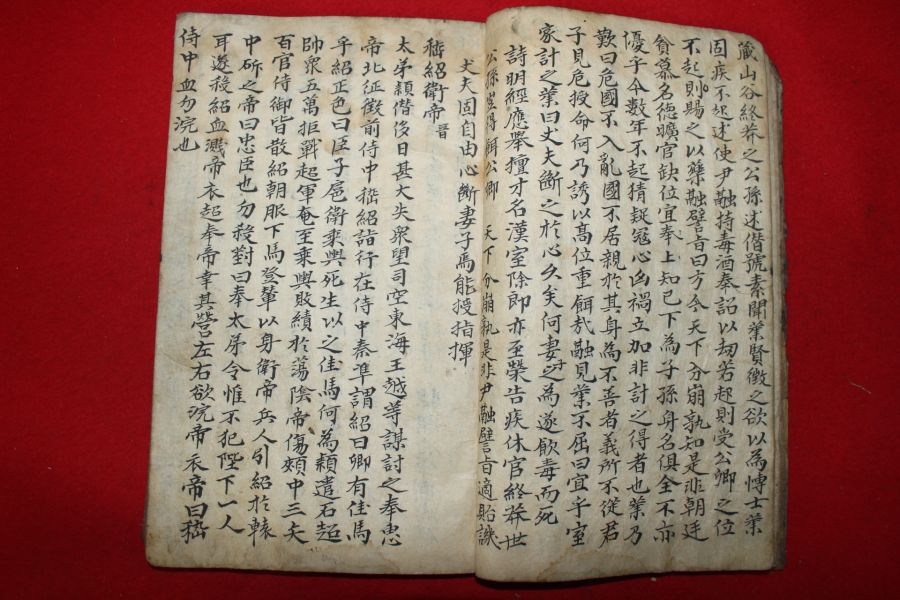 藏山谷終莽之世公孫述僭號素聞業賢徵之欲以為博士業
固疾不起述使尹融持毒酒奉詔以刼若起則受公卿之位
不起則賜之以藥融譬旨曰方今天下分崩孰知是非朝廷
貪慕名德曠官缺位宜奉上知己下為子孫身名俱全不亦
優乎今數年不起猜疑寇心凶禍立加非計之得者也業乃
歎曰危國不入亂國不居親於其身為不善者義所不從君
子見危授命何乃誘以高位重餌哉融見業不屈曰宜乎室
家計之業曰丈夫斷之於心久矣何妻子之為遂飲毒而死
詩明經應擧擅才名漢室除郎亦至榮告疾休官終莽世
公孫 得 公卿 天下分崩孰是非尹融譬旨適貽譏
丈夫固自由心斷妻子焉能授指揮
嵇紹衛帝晋
太弟穎僭侈日甚大失衆望司空東海王越等謀討之奉惠
帝北征徵前侍中嵇紹詣行在侍中秦準謂紹曰卿有佳馬
乎紹正色曰臣子扈衛乘輿死生以之佳馬何為穎遣石超
帥衆五萬拒戰超軍奄至乘輿敗績於蕩陰帝傷頰中三矢
百官侍御皆散紹朝服下馬登輦以身衛帝兵人引紹於轅
中斫之帝曰忠臣也勿殺對曰奉太弟令惟不犯陛下一人
耳遂殺紹血濺帝衣超奉帝幸其營左右欲浣帝衣帝曰嵇
侍中血勿浣也